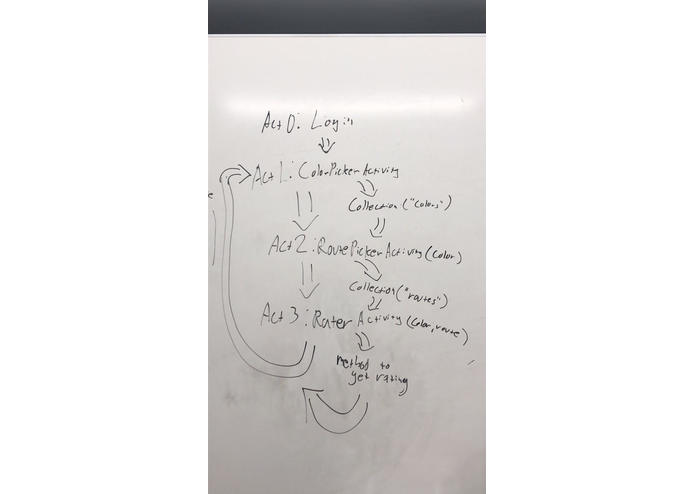 Act 0: Login
Act 1: ColorPickerActivity
Collection("colors")
Act 2: RoutePickerActivity(color)
Collection("routes")
Act 3: Rater Activity(color, route)
method to
get rating